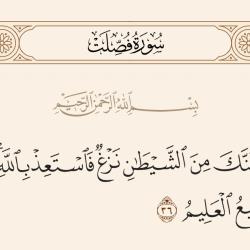 سُورَةُ فُصِّلَتْ
بِسْمِ اللَّهِ الرَّحْمَٰنِ الرَّحِيمِ
نَّكَ مِنَ الشَّيْطَانِ نَزْغٌ فَاسْتَعِذْ بِاللَّهِ
يعُ الْعَلِيمُ ٣٦